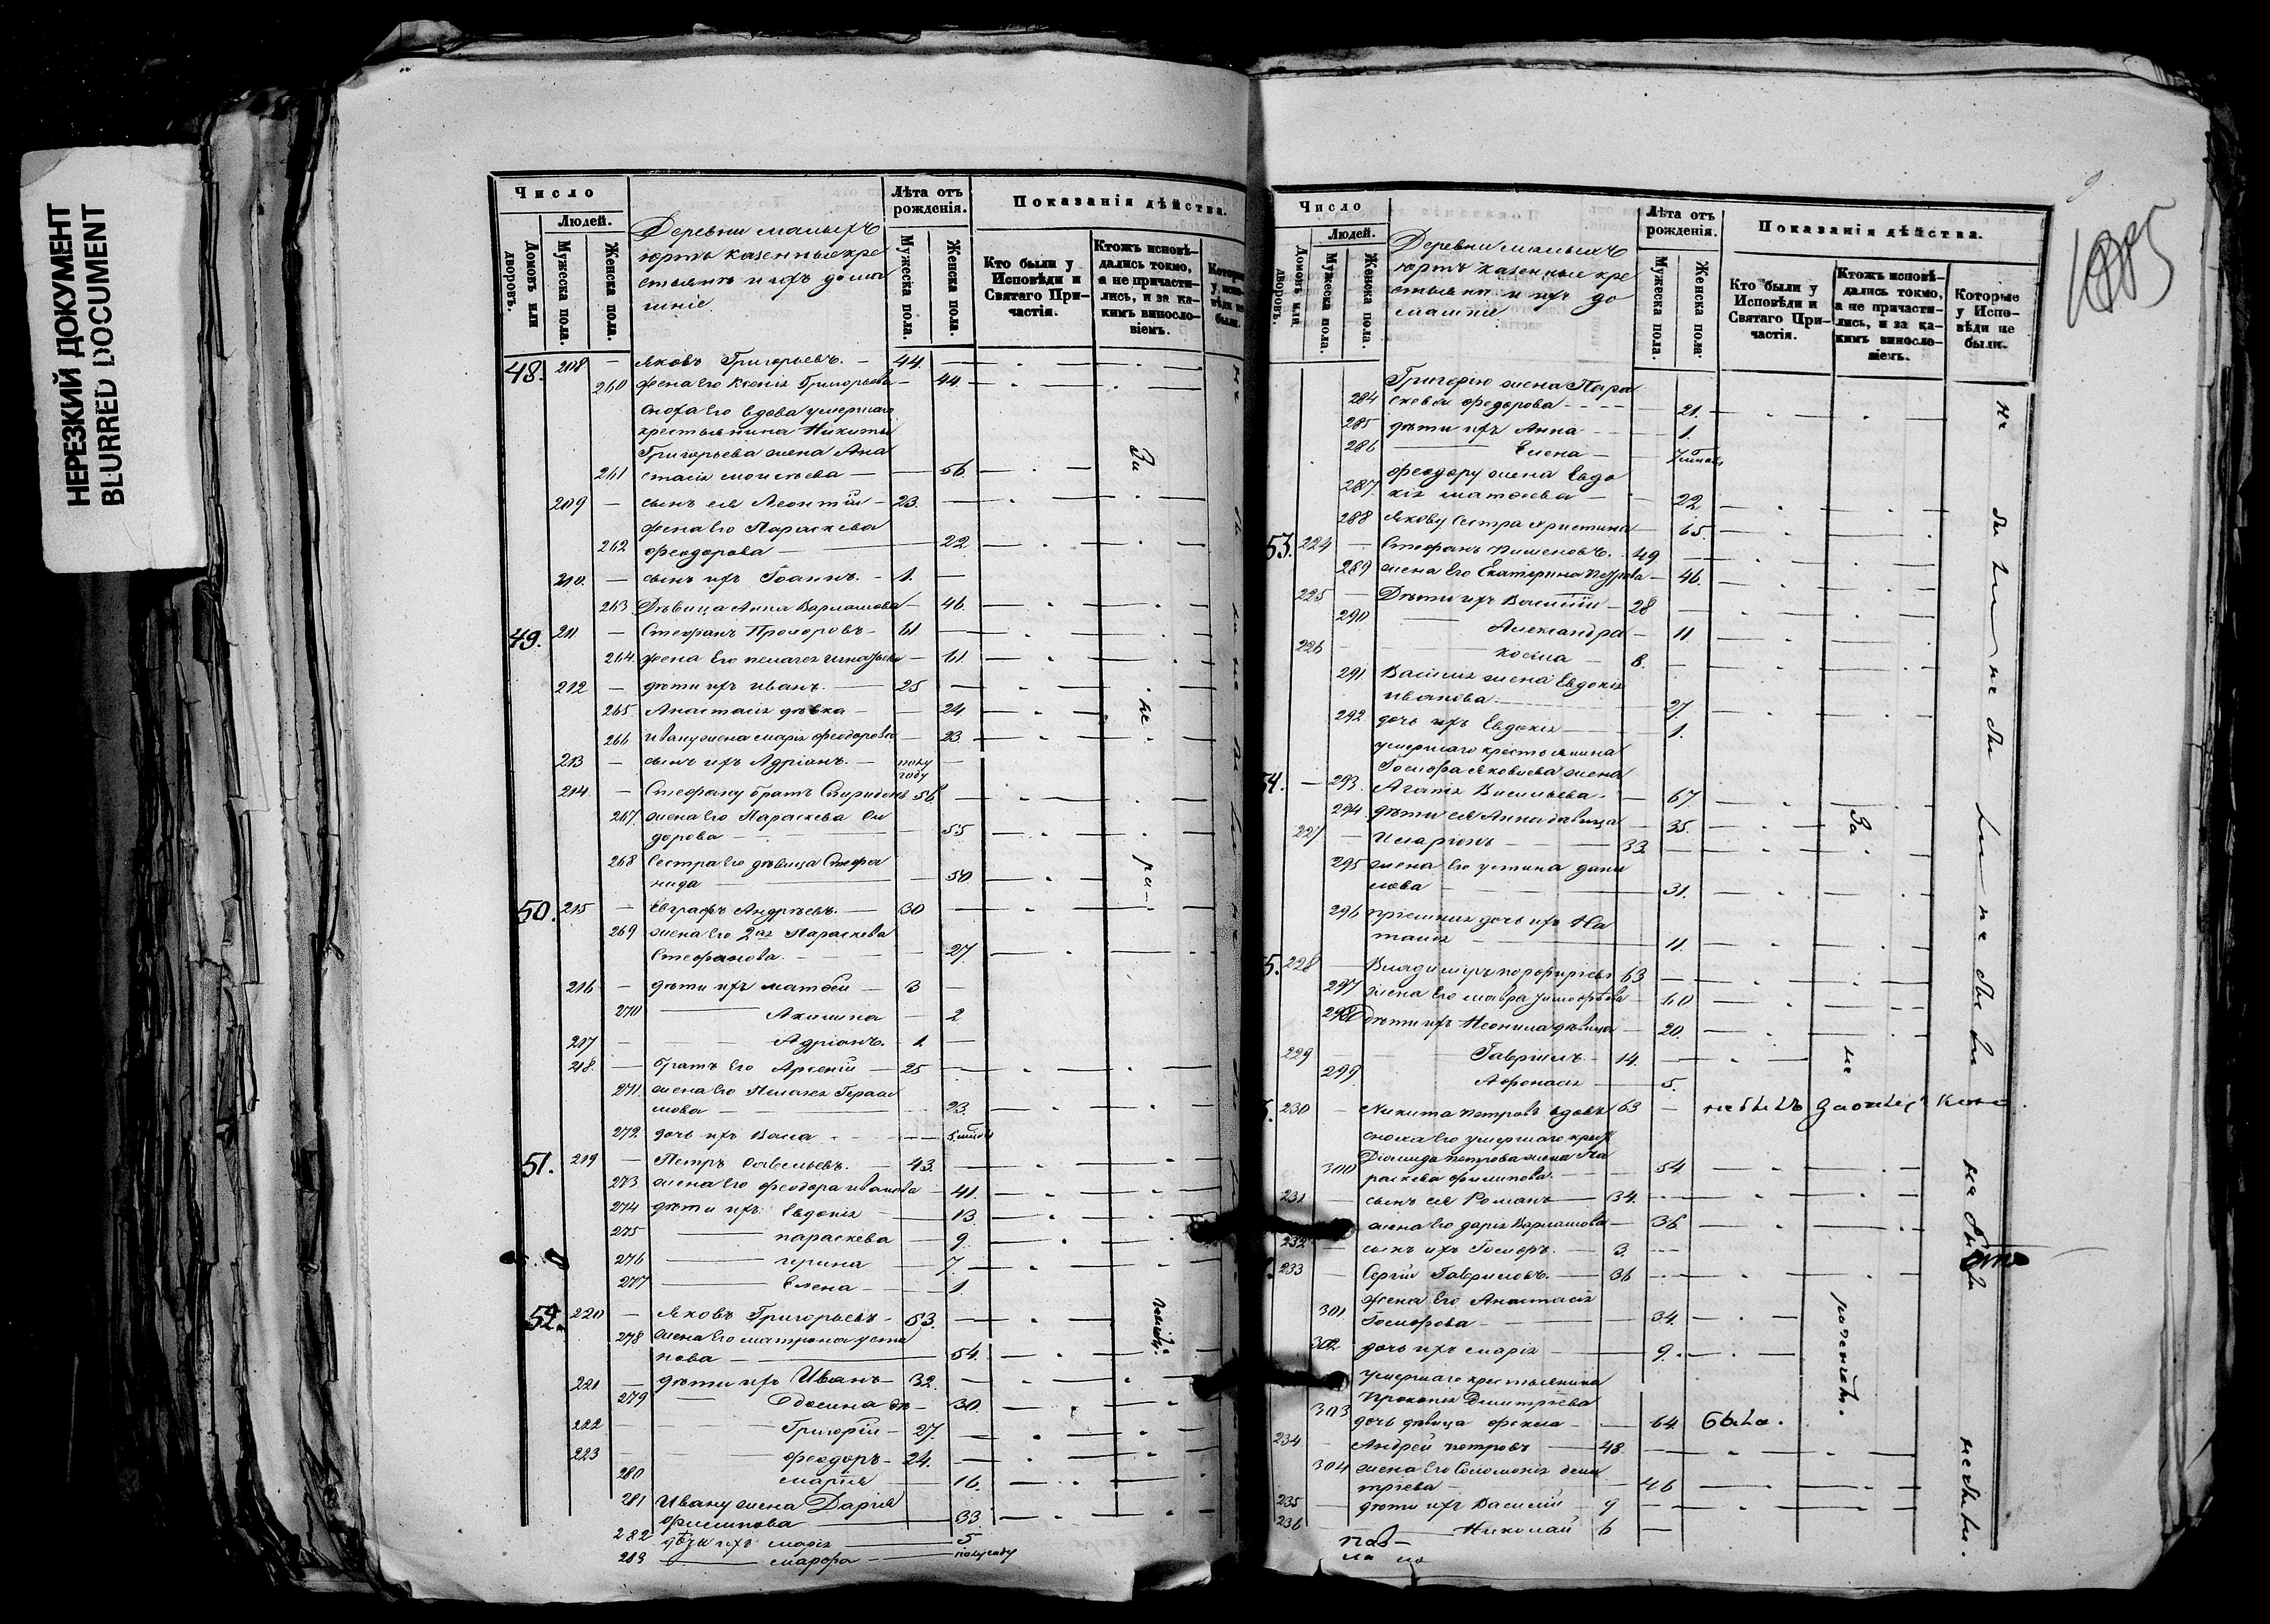 НЕРЕЗКИЙ ДОКУМЕНТ
BLURRED DOCUMENT
Число
Людей.
Домовъ или дворовъ.
Мужеска пола.
Женска пола.
Деревни малыхъ
юртъ казенные кре
стьянъ и ихъ дома
шніе.
Лѣта отъ рожденія.
Мужеска пола.
Женска пола.
Показанія дѣйства.
Кто были у Исповѣди и Святаго При-частія.
Ктожъ исповѣ-дались токмо, а не причасти-лись, и за ка-кимъ винослo-віемъ.
48. 208 — Яковъ Григорьевъ. — 44.
260 жена его Ксенія Григорьева — 44
сноха его вдова умершаго
крестьянина Никиты
Григорьева жена Ана
261 стасія Моисѣева — 56.
209 — сынъ ея Леонтій — 23.
жена его Параскева
262 Феодорова — 22.
210. — сынъ ихъ Іоаннъ. — 1.
263 Дѣвица Анна Варламова — 46.
49. 211 — Стефанъ Прохоровъ — 61
264. жена его Пелагея Игнатьева — 61
212 — дѣти ихъ Иванъ. — 25
265 Анастасія дѣвка — 24
266 Ивану жена Марія Феодорова — 23.
213 — сынъ ихъ Адріанъ. — полу
году
214. — Стефану братъ Спиридонъ 56.
267 жена его Параскева Си
дорова — 55
268 сестра его дѣвица Стефа
нида — 50.
50. 215 — Евграфъ Андрѣевъ. — 30
269 жена его 2ая Параскева
Стефанова. — 27.
216 — дѣти ихъ Матвѣй — 3
270 — Акилина — 2
217 — Адріанъ. — 1
218. — братъ его Арсеній — 25
271. жена его Пелагея Гераси
мова — 23.
272 дочь ихъ Васса
51. 219 — Петръ Савельевъ. — 43.
273 жена его Феодора Иванова — 41.
274 дѣти ихъ Евдокія — 13.
275 — Параскева — 9
276 — Ирина — 7.
277 — Елена — 1
52. 220 — Яковъ Григорьевъ — 53.
278 жена его Матрона Усти
нова — 54.
221 — дѣти ихъ Иванъ — 32.
279 — 30.
222 — Григорій — 27.
223 — Феодоръ — 24.
280 — Марія — 16.
281 Ивану жена Дарія
Филипова — 33
282 дѣти ихъ Марія — 5
283 — Марфа — полугоду
За
не
ра-
Число
Людей.
Домовъ или дворовъ.
Мужеска пола.
Женска пола.
Деревни малыхъ
юртъ казенные кре
стьянъ и ихъ до
машніе
Лѣта отъ рожденія.
Мужеска пола.
Женска пола.
Показанія дѣйства.
Кто были у Исповѣди и Святаго При-частія.
Ктожъ исповѣ-дались токмо, а не причасти-лись, и за ка-кимъ винослo-віемъ.
Которые у Испо-вѣди не были.
Григорію жена Пара
284 скева Федорова — 21.
285 дѣти ихъ Анна — 1.
286 — Елена —
Феодору жена Евдо
287 кія Матвѣева — 22.
288 Якову сестра Христина — 65.
53. 224 — Стефанъ Пименовъ. 49
289 жена его Екатерина Петрова — 46.
225 — Дѣти ихъ Василій — 28
290 — Александра — 11.
226 — Косма — 8.
291 Василія жена Евдокія
Иванова — 27.
292 дочь ихъ Евдокія — 1.
умершаго крестьянина
Іосифа Яковлева жена
54. — 293. Агапія Васильева. — 67
294. дѣти ея Анна дѣвица — 35.
227 — Иларіонъ — 33.
295 жена его Устина Дани
лова — 31.
296 пріемная дочь ихъ На
талія — 11.
55. 228 — Владиміръ Порфирьевъ 63
297 жена его Мавра Тимофѣева — 60
298 дѣти ихъ Неонила дѣвица — 20.
229 — Гавріилъ. — 14.
299 — Афонасія — 5.
230 — Никита Петровъ вдовъ 63
сноха его умершаго крест
Діомида Петрова жена Па
300 раскева Филипова. — 54
231 — сынъ ея Романъ — 34.
жена его Дарія Варламова — 36.
232 — сынъ ихъ Іосифъ. — 3.
233 — Сергій Гавриловъ. — 36
301 жена его Анастасія
Іосифова — 34.
302 дочь ихъ Марія — 9.
умершаго крестьянина
Прокопія Димитріева
303 дочь дѣвица Фекла — 64. была.
234 — Андрей Петровъ — 48.
304 жена его Соломонія Дими
тріева — 46
235 — дѣти ихъ Василій — 9
236 — Николай 6
За
не
раченіемъ.
не были
не были.